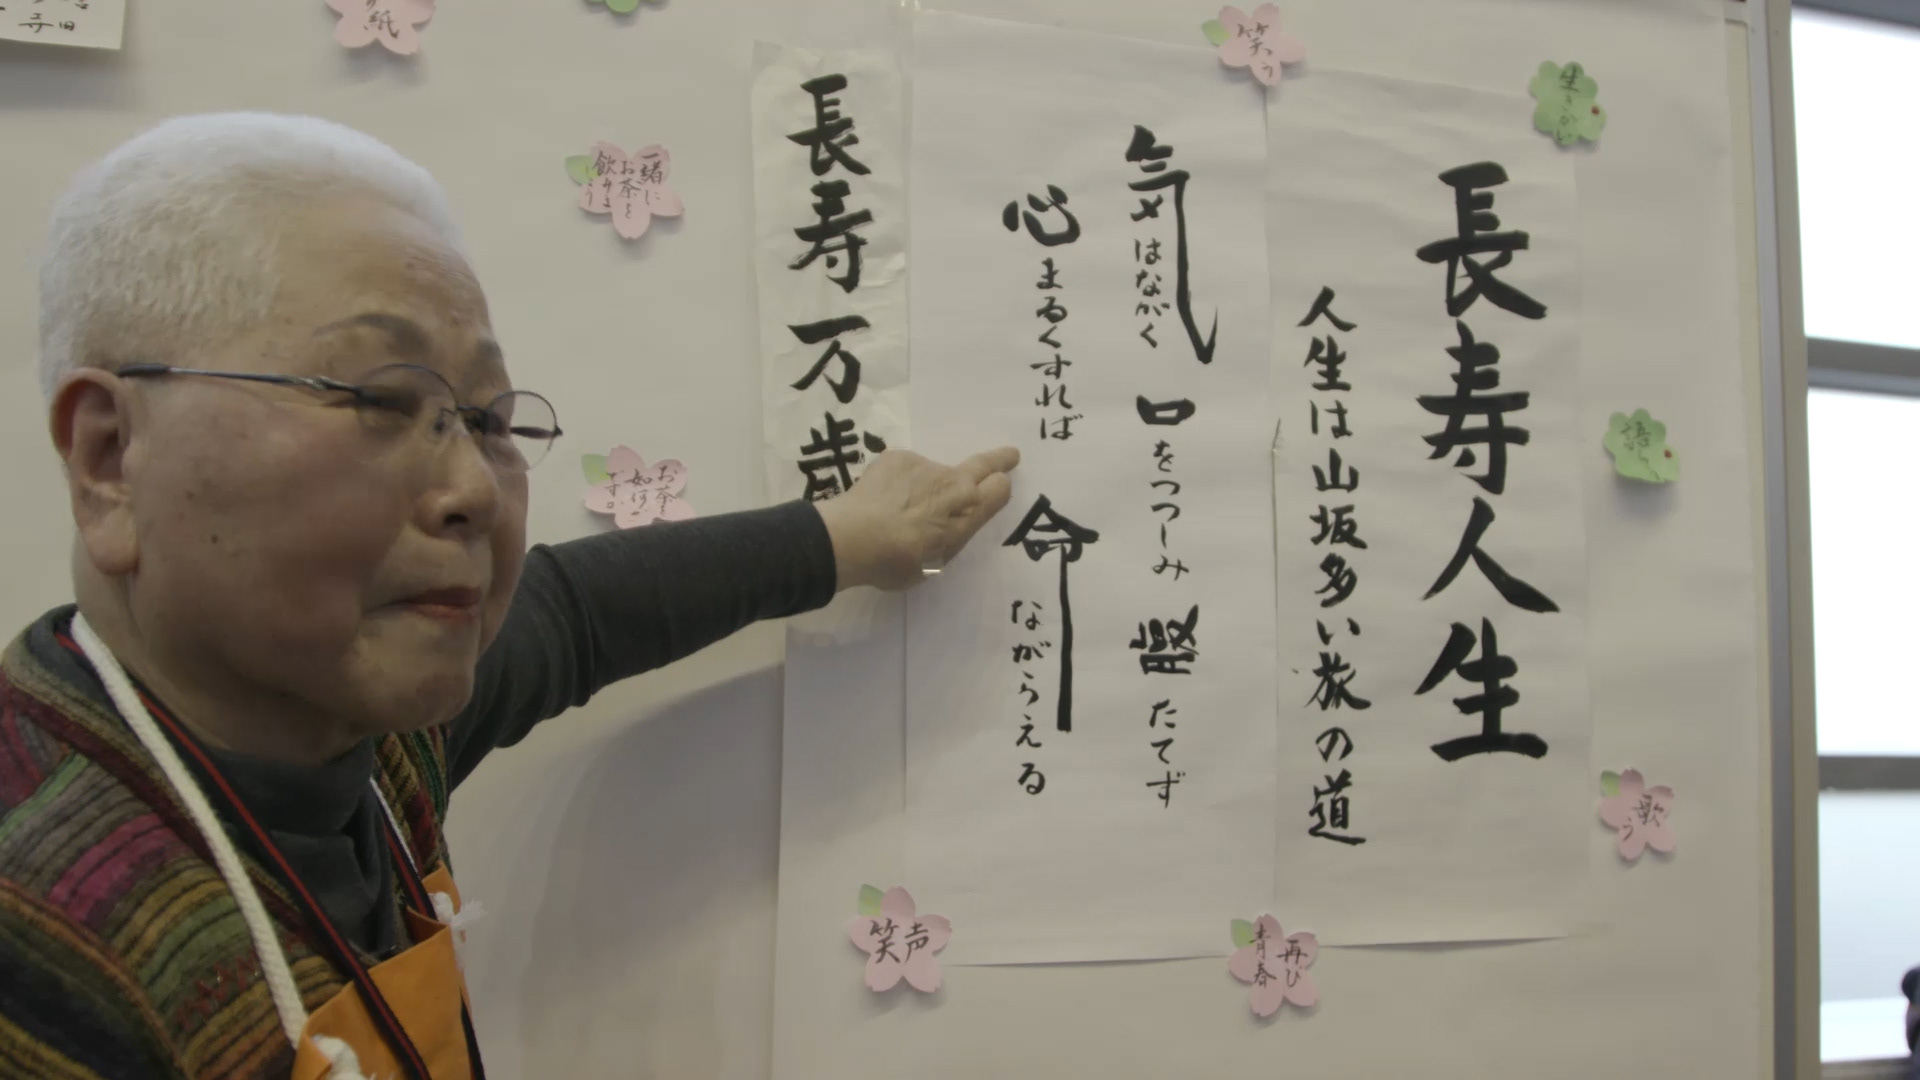 長寿人生
人生は山坂多い旅の道
気はながく 口をつつしみ 腹たてず
心まるくすれば 命ながらえる
長寿万歳
笑う
生きがい
歌う
再び
青春
笑声
一緒に
お茶を
飲みましょう
お茶を
如何
ですか
紙